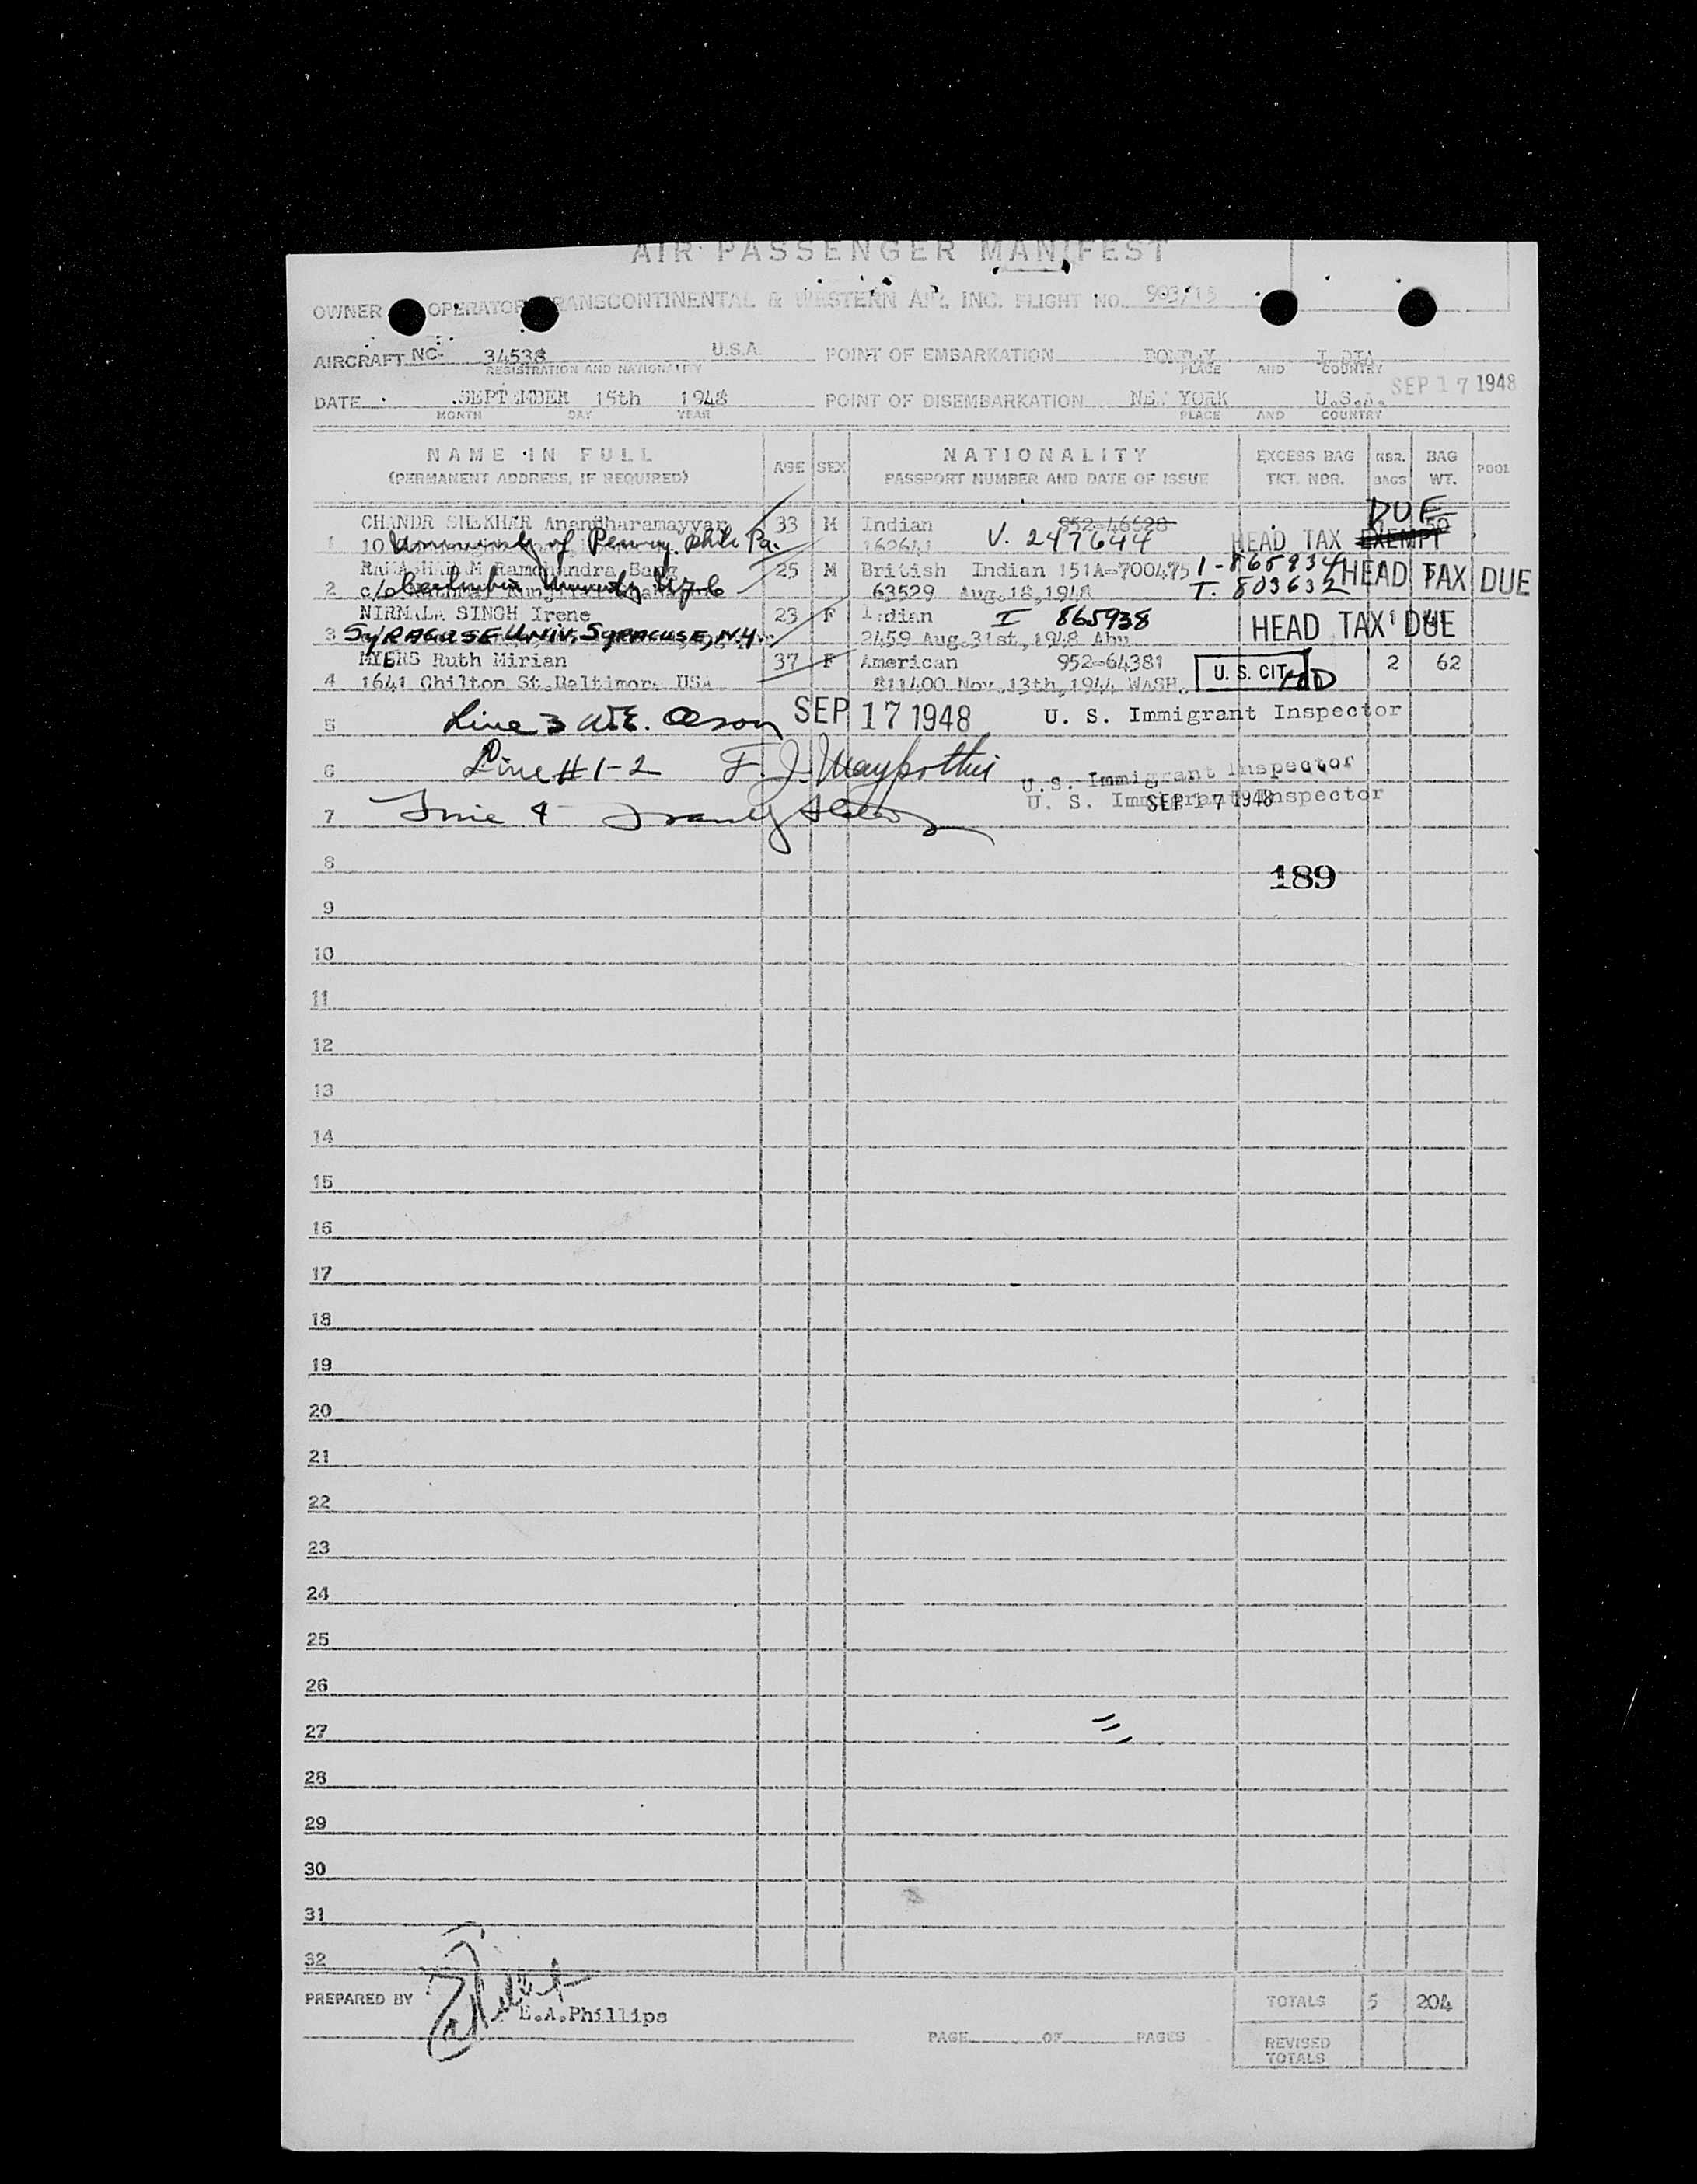 AIR PASSENGER MANIFEST
OWNER OPERATOR TRANSCONTINENTAL & WESTERN AIR, INC. FLIGHT NO. 903/15
AIRCRAFT NC- 34538 U.S.A. POINT OF EMBARKATION BOMBAY INDIA
REGISTRATION AND NATIONALITY PLACE AND COUNTRY
SEP 17 1948
DATE SEPTEMBER 15th 1948 POINT OF DISEMBARKATION NEW YORK U.S.A.
MONTH DAY YEAR PLACE AND COUNTRY
NAME IN FULL AGE SEX NATIONALITY EXCESS BAG NBR. BAG POOL
(PERMANENT ADDRESS, IF REQUIRED) PASSPORT NUMBER AND DATE OF ISSUE TKT. NBR. BAGS WT.
DUE
CHANDR SHEKHAR Anandharamayyar 33 M Indian 952-46628
1 10 University of Penny. Phil Pa. 162641 V. 247644 HEAD TAX EXEMPT
Ramchandra 25 M British Indian 151A-700475 1-865934 HEAD TAX DUE
2 c/o Columbia 63529 Aug.18,1948 T. 803632
NIRMALA SINGH Irene 23 F Indian I 865938 HEAD TAX DUE
3 SYRACUSE UNIV. SYRACUSE, N.Y. 2459 Aug.31st,1948
MYERS Ruth Mirian 37 F American 952-64381 U. S. CIT 2 62
4 1641 Chilton St.Baltimore USA 811400 Nov.13th,1944 WASH.
5 Line 3 Olson SEP 17 1948 U. S. Immigrant Inspector
6 Line # 1-2 F. J. U.S. Immigrant Inspector
U. S. Immigrant Inspector
SEP 17 1948
7 Line 4
8 189
9
10
11
12
13
14
15
16
17
18
19
20
21
22
23
24
25
26
27
28
29
30
31
32
PREPARED BY E.A.Phillips TOTALS 5 204
PAGE OF PAGES REVISED TOTALS